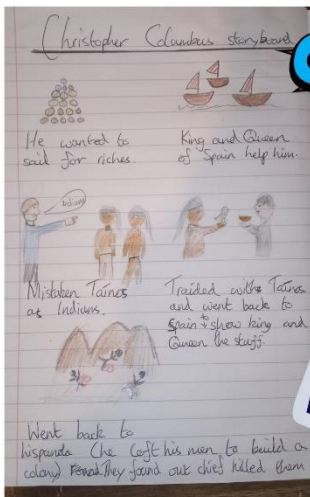 Christopher Columbus storyboard
He wanted to
sail for riches.
King and Queen
of Spain help him.
Indians
Mistaken Taínos
as Indians.
Traided with Taínos
and went back to
Spain to show king and
Queen the stuff.
Went back to
hispanola (he left his men to build a
colony) They found out chief killed them